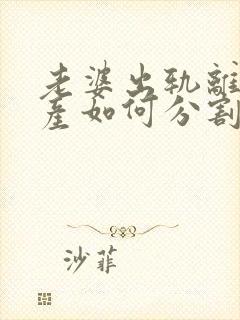 老婆出轨离
产如何分割
沙菲